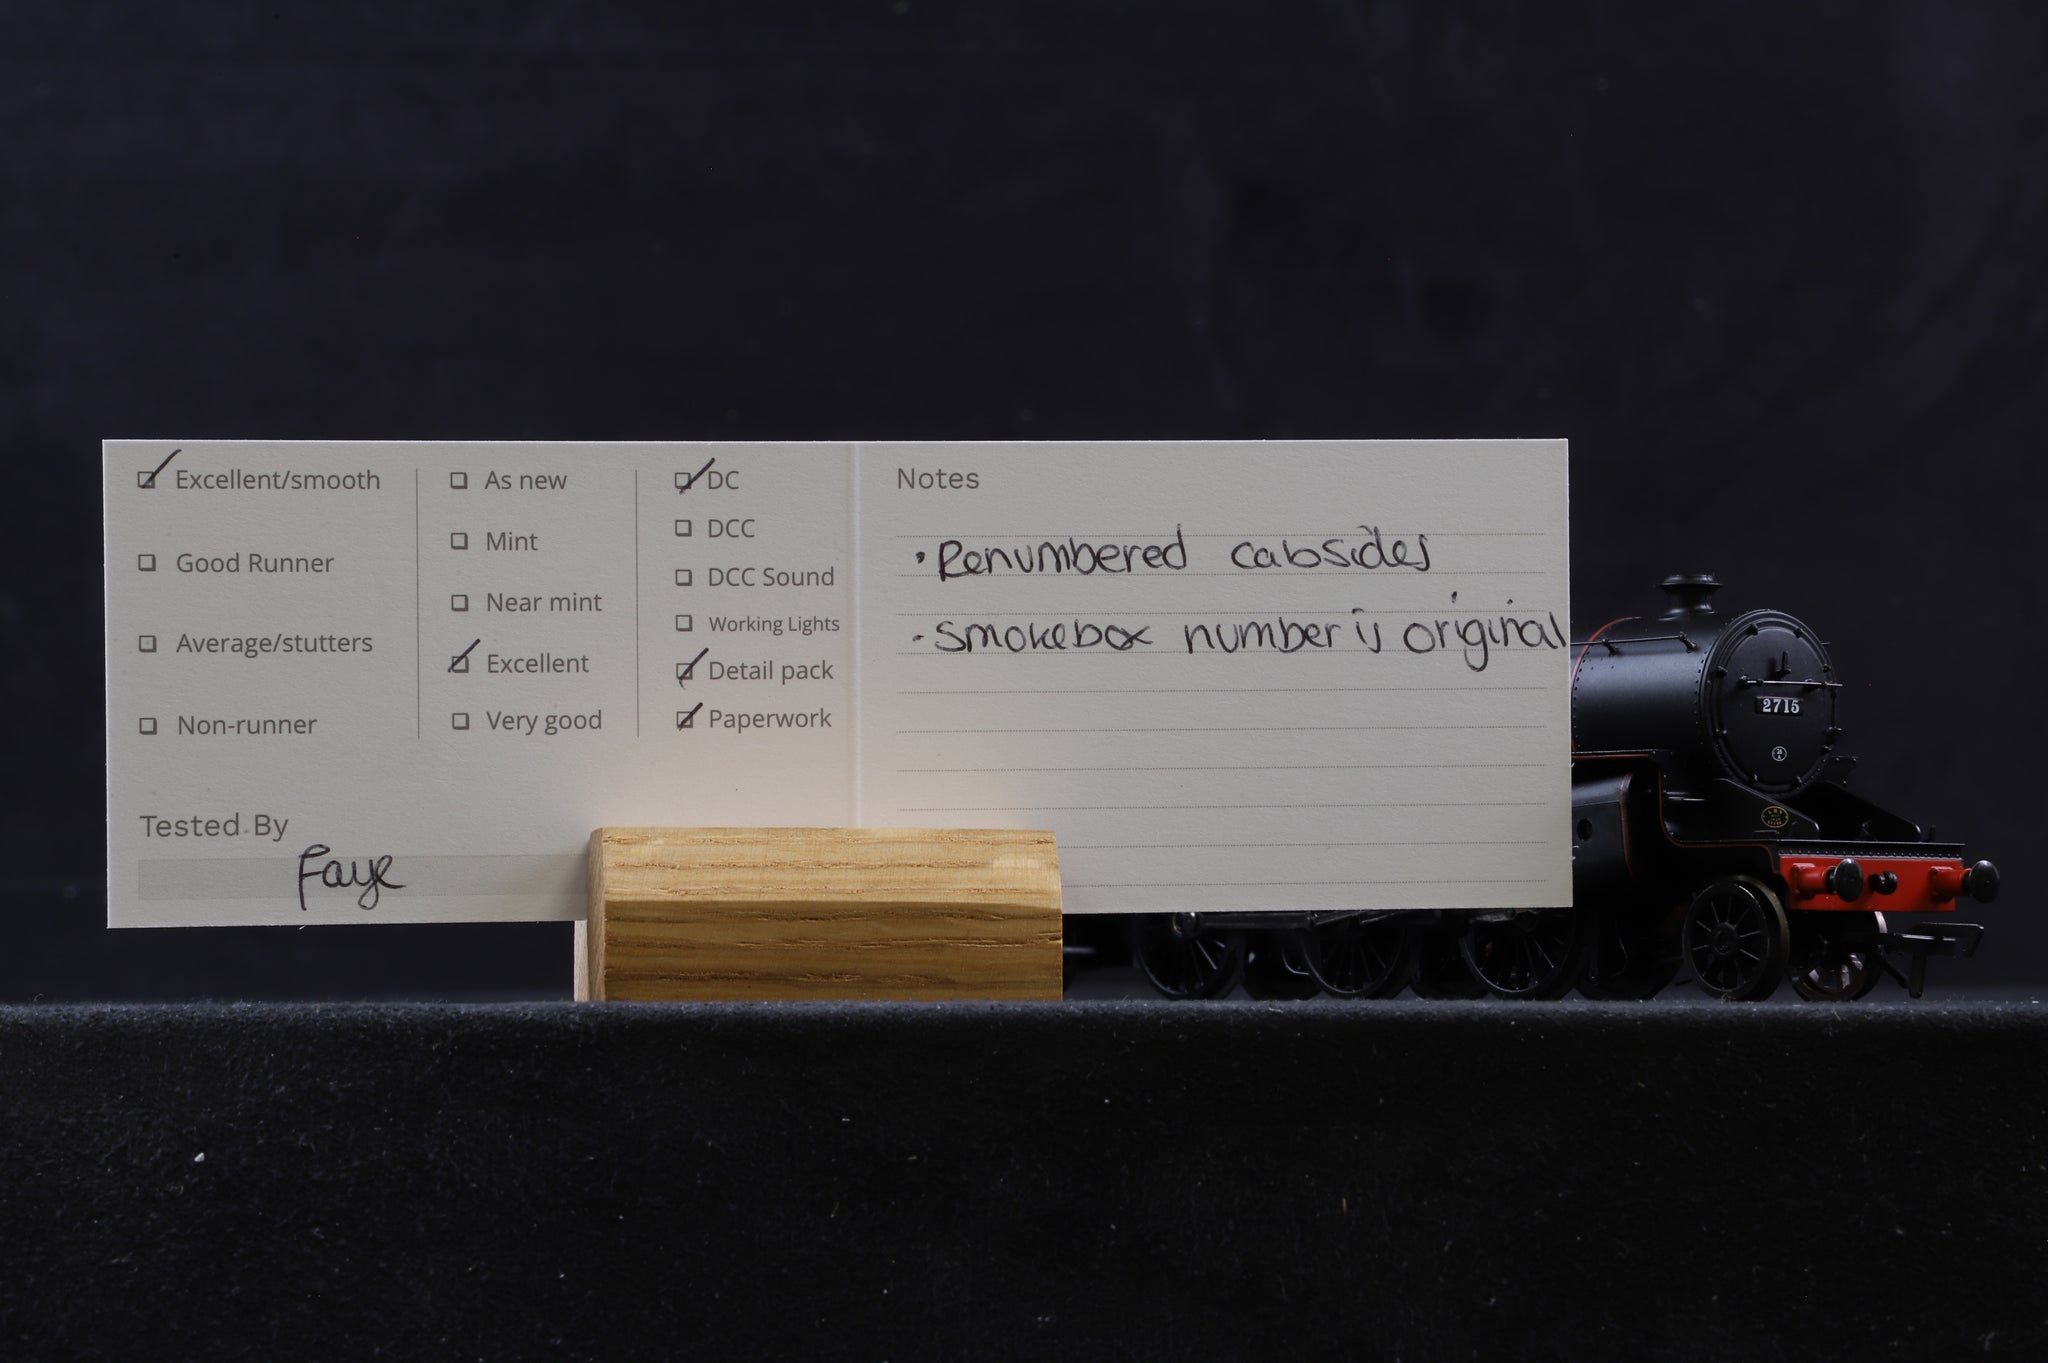 Excellent/smooth
Good Runner
Average/stutters
Non-runner
As new
Mint
Near mint
Excellent
Very good
DC
DCC
DCC Sound
Working Lights
Detail pack
Paperwork
Tested By
Faye
Notes
• Renumbered cabsides
- Smokebox number is original
2715